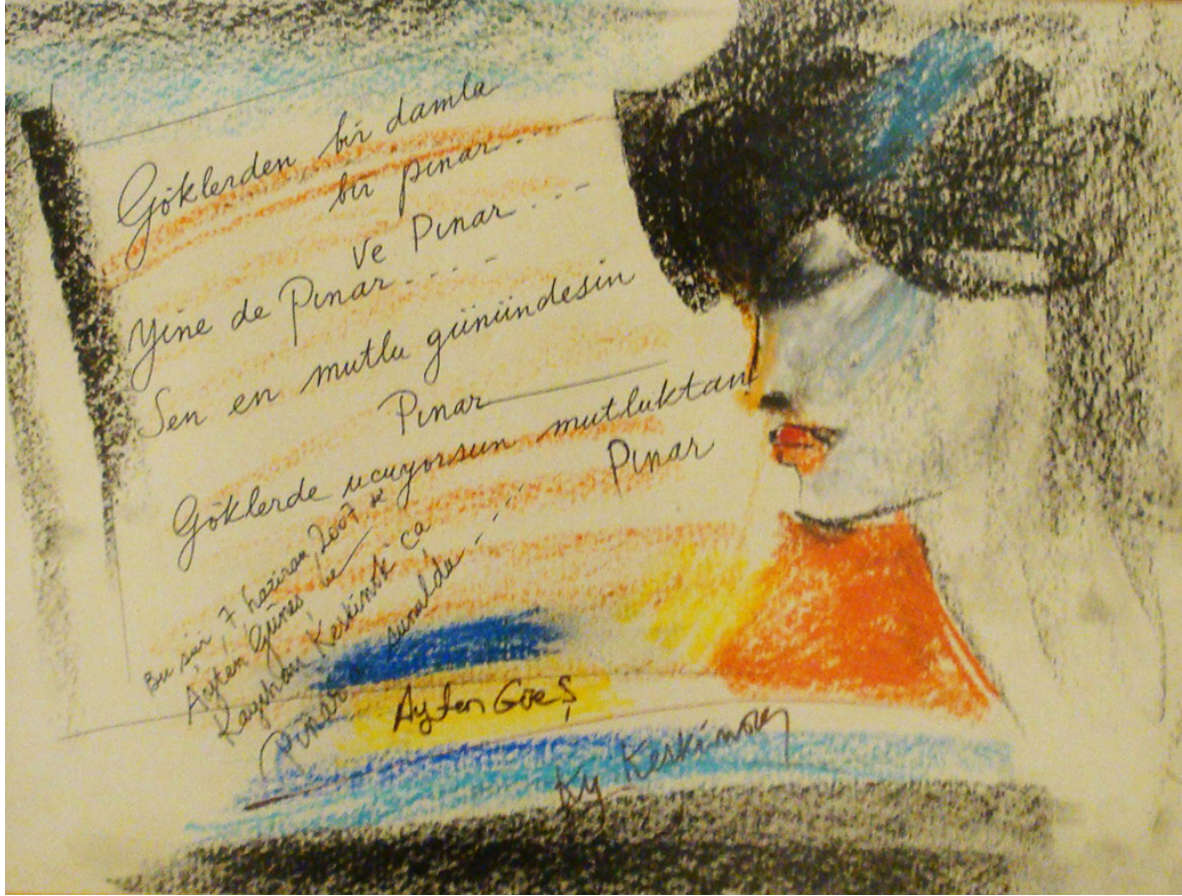 Göklerden bir damla
bir pınar . . .
ve Pınar . . .
Yine de Pınar . . . .
Sen en mutlu günündesin
Pınar
Göklerde uçuyorsun mutluktan
Pınar
Bu şiir 7 haziran 2007 de
Ayten Güneş ve
Kayıhan Keskinok ca
Pınar'a sunuldu
Ayten Güneş
Ky Keskinok